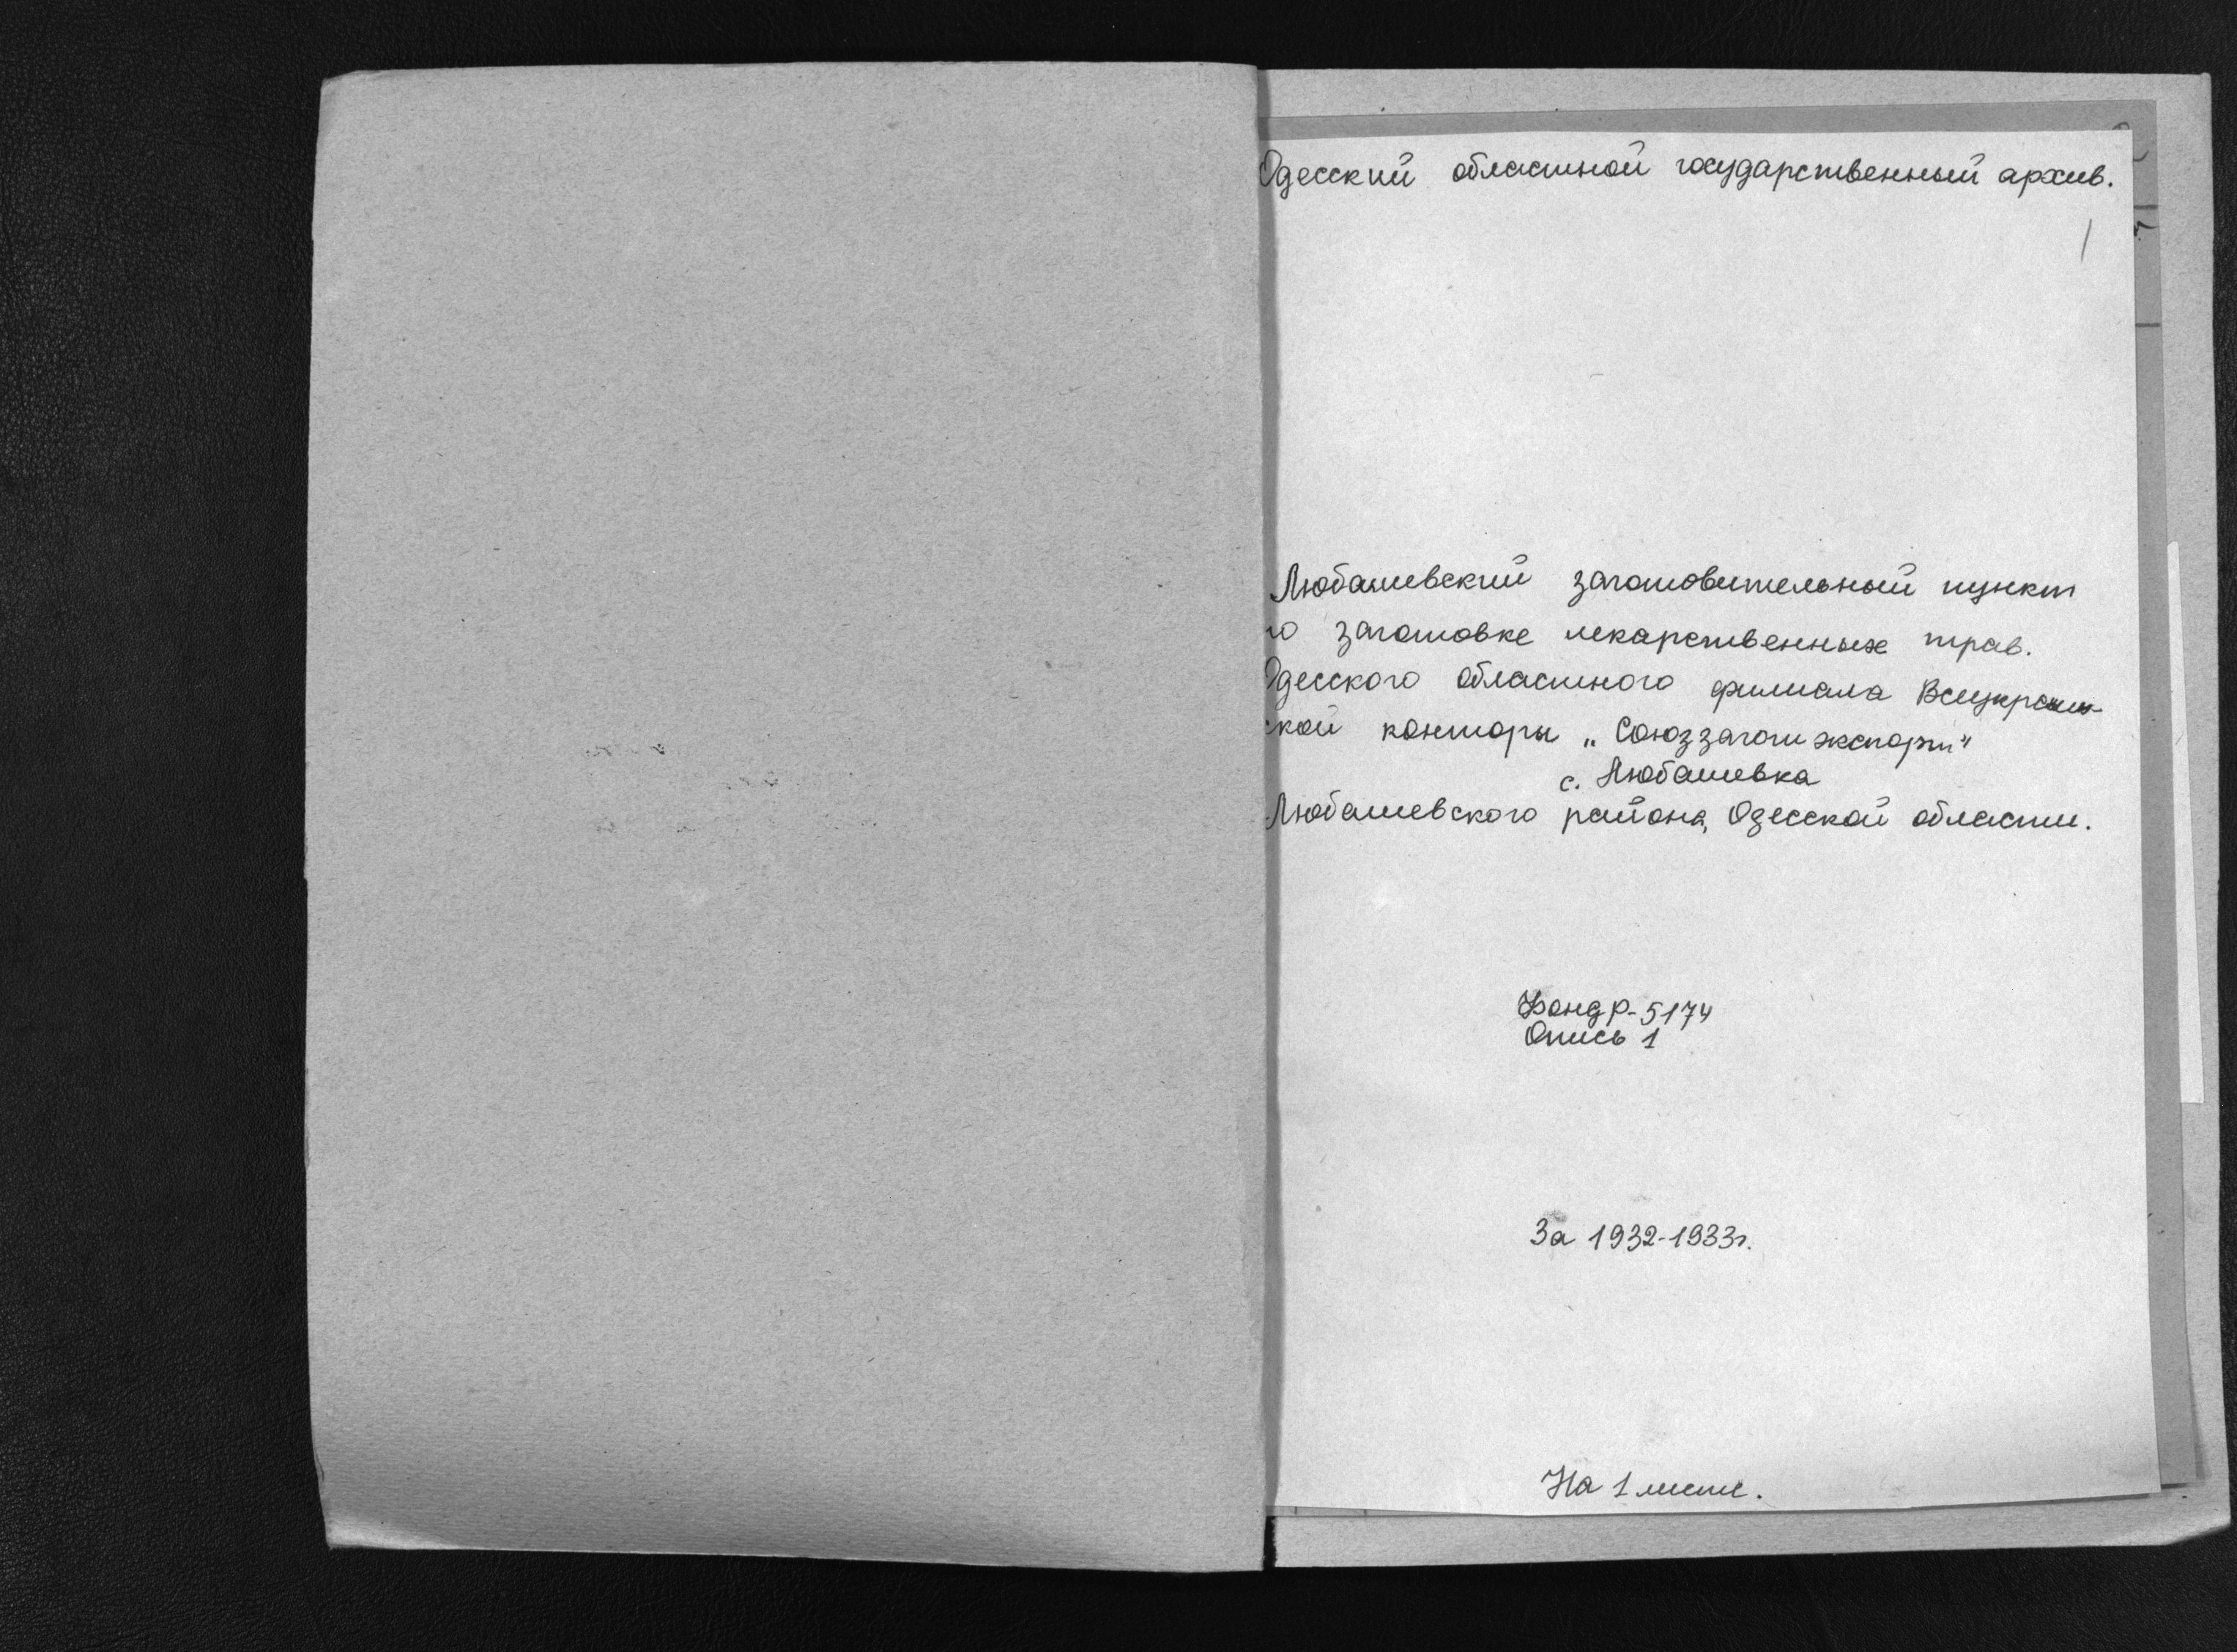 Одесский областной государственный архив.
1
Любашевский заготовительный пункт
по заготовке лекарственных трав.
Одесского областного филиала Всеукраин-
ской конторы „Союззаготэкспорт"
с. Любашевка
Любашевского района, Одесской области.
Фонд Р-5174
Опись 1
За 1932-1933г.
На 1 листе.